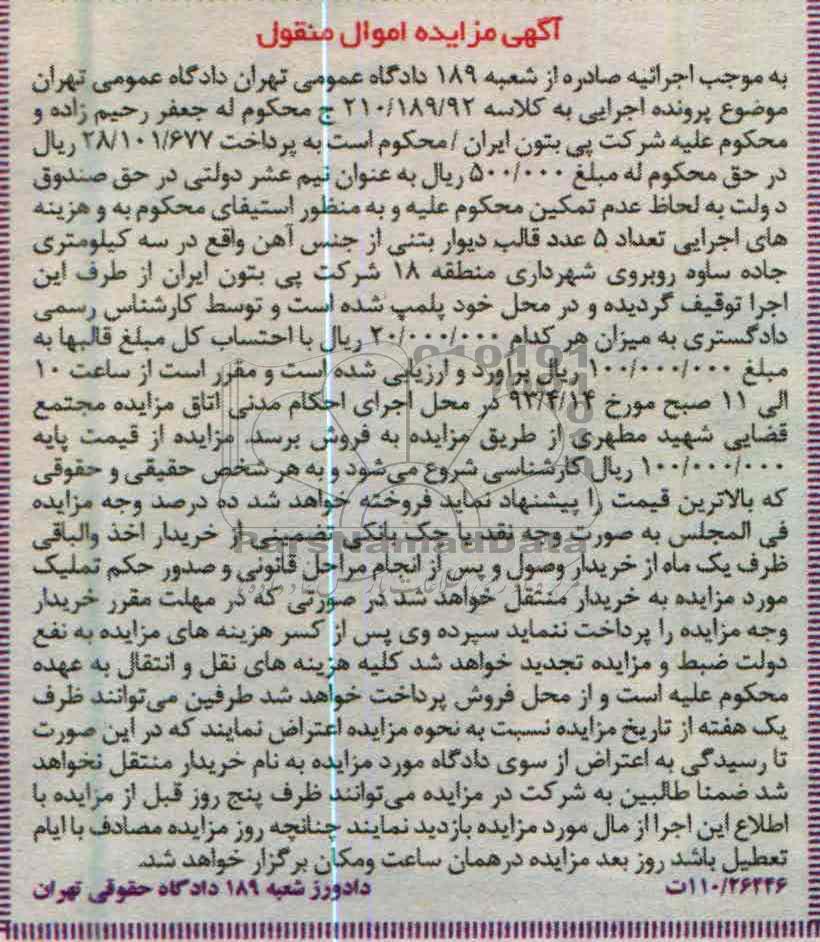 آگهی مزایده اموال منقول
به موجب اجرائیه صادره از شعبه ۱۸۹ دادگاه عمومی تهران دادگاه عمومی تهران
موضوع پرونده اجرایی به کلاسه ۲۱۰/۱۸۹/۹۲ ج محکوم له جعفر رحیم زاده و
محکوم علیه شرکت پی بتون ایران / محکوم است به پرداخت ۲۸/۱۰۱/۶۷۷ ریال
در حق محکوم له مبلغ ۵۰۰/۰۰۰ ریال به عنوان نیم عشر دولتی در حق صندوق
دولت به لحاظ عدم تمکین محکوم علیه و به منظور استیفای محکوم به و هزینه
های اجرایی تعداد ۵ عدد قالب دیوار بتنی از جنس آهن واقع در سه کیلومتری
جاده ساوه روبروی شهرداری منطقه ۱۸ شرکت پی بتون ایران از طرف این
اجرا توقیف گردیده و در محل خود پلمپ شده است و توسط کارشناس رسمی
دادگستری به میزان هر کدام ۲۰/۰۰۰/۰۰۰ ریال با احتساب کل مبلغ قالبها به
مبلغ ۱۰۰/۰۰۰/۰۰۰ ریال برآورد و ارزیابی شده است و مقرر است از ساعت ۱۰
الی ۱۱ صبح مورخ ۹۳/۴/۱۴ در محل اجرای احکام مدنی اتاق مزایده مجتمع
قضایی شهید مطهری از طریق مزایده به فروش برسد. مزایده از قیمت پایه
۱۰۰/۰۰۰/۰۰۰ ریال کارشناسی شروع می‌شود و به هر شخص حقیقی و حقوقی
که بالاترین قیمت را پیشنهاد نماید فروخته خواهد شد ده درصد وجه مزایده
فی المجلس به صورت وجه نقد یا چک بانکی تضمینی از خریدار اخذ والباقی
ظرف یک ماه از خریدار وصول و پس از انجام مراحل قانونی و صدور حکم تملیک
مورد مزایده به خریدار منتقل خواهد شد در صورتی که در مهلت مقرر خریدار
وجه مزایده را پرداخت ننماید سپرده وی پس از کسر هزینه های مزایده به نفع
دولت ضبط و مزایده تجدید خواهد شد کلیه هزینه های نقل و انتقال به عهده
محکوم علیه است و از محل فروش پرداخت خواهد شد طرفین می‌توانند ظرف
یک هفته از تاریخ مزایده نسبت به نحوه مزایده اعتراض نمایند که در این صورت
تا رسیدگی به اعتراض از سوی دادگاه مورد مزایده به نام خریدار منتقل نخواهد
شد ضمنا طالبین به شرکت در مزایده می‌توانند ظرف پنج روز قبل از مزایده با
اطلاع این اجرا از مال مورد مزایده بازدید نمایند چنانچه روز مزایده مصادف با ایام
تعطیل باشد روز بعد مزایده درهمان ساعت ومکان برگزار خواهد شد.
۱۱۰/۲۶۲۴۶ت دادورز شعبه ۱۸۹ دادگاه حقوقی تهران
ParsNamadData